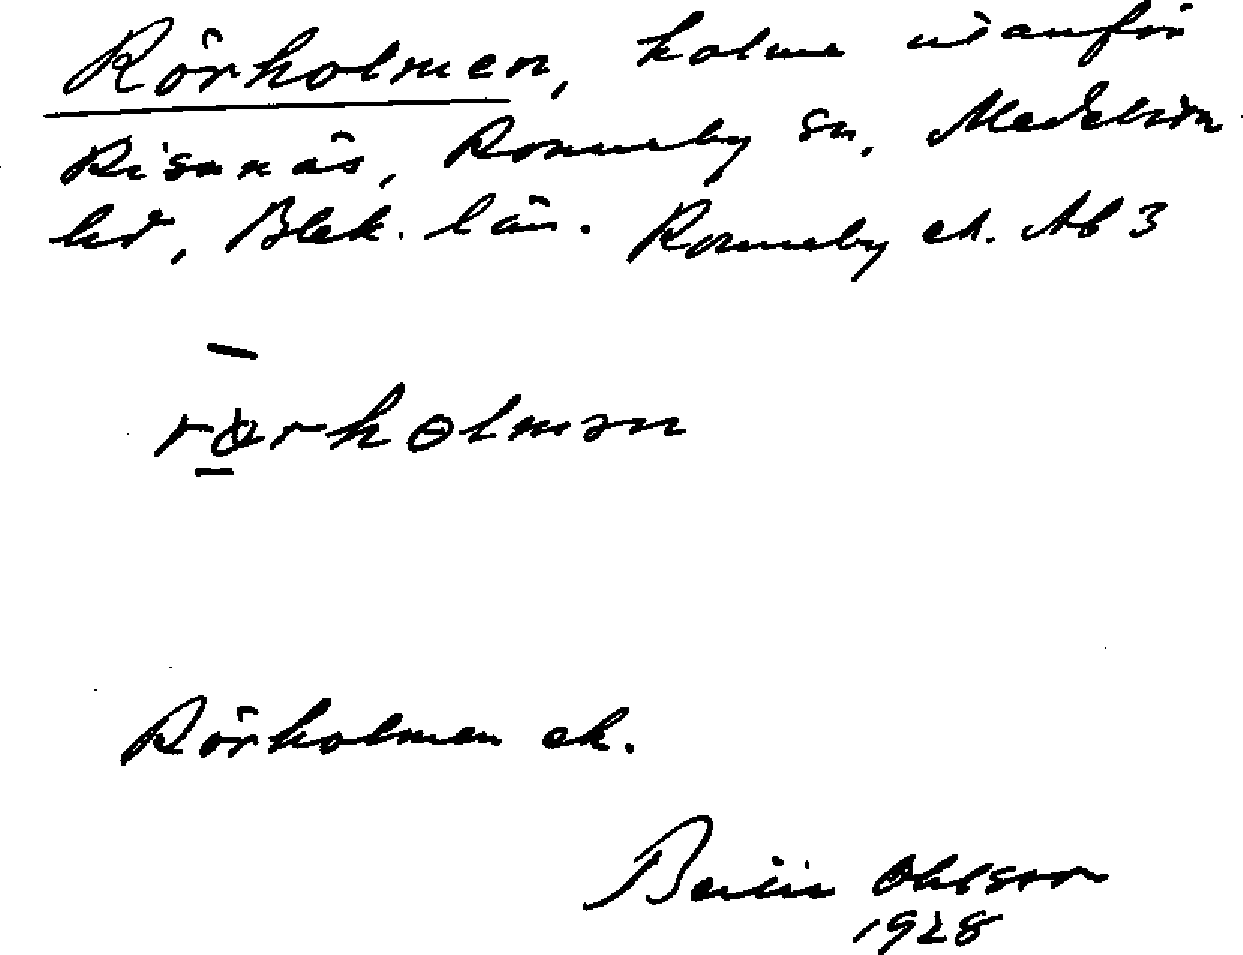 Rörholmen, holme utanför
Risanäs, Ronneby sn, Medelsta
hd, Blek. län. Ronneby ek. Ab 3
rörholmən
Rörholmen ek.
Bertil Ohlsson
1928